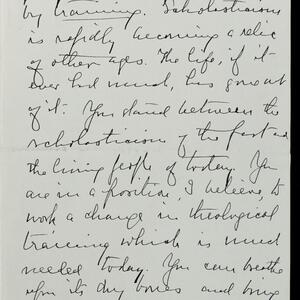 by training. Scholasticism
is rapidly becoming a relic
of other ages. The life, if it
ever had much, has gone out
of it. You stand between the
scholasticism of the past and
the living people of today. You
are in a position, I believe, to
work a change in theological
training which is much
needed today. You can breathe
upon its dry bones and bring